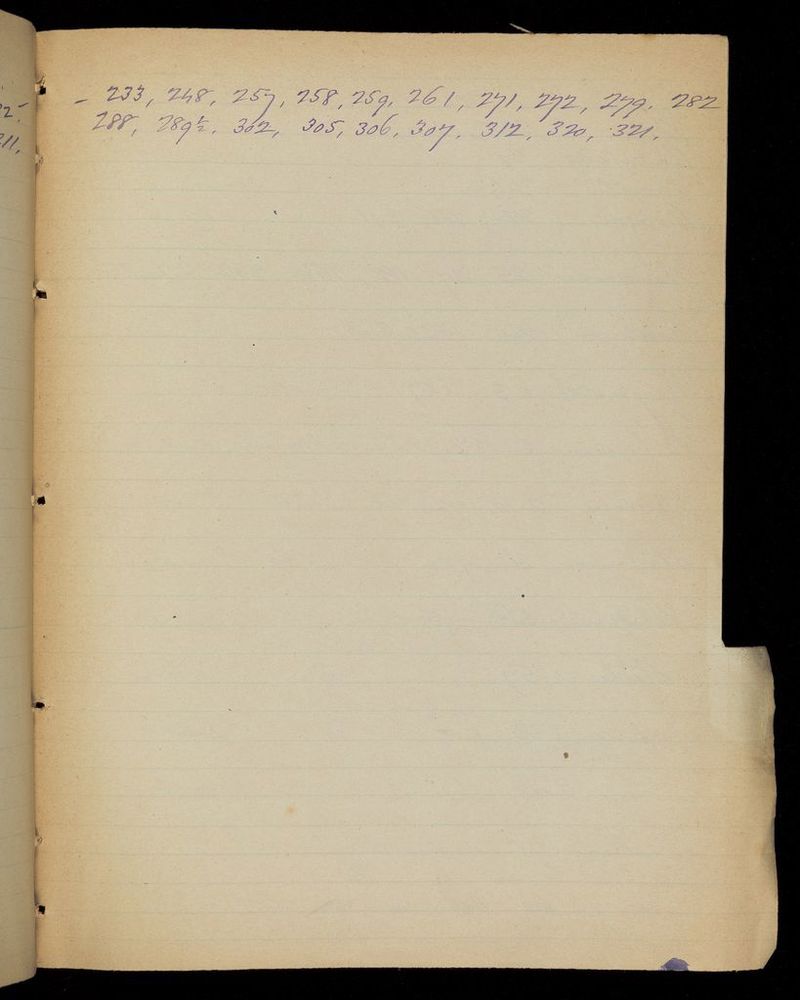 – 233, 248, 257, 258, 259, 261, 271, 272, 279, 282
288, 289½, 302, 305, 306, 307, 312, 320, 321.